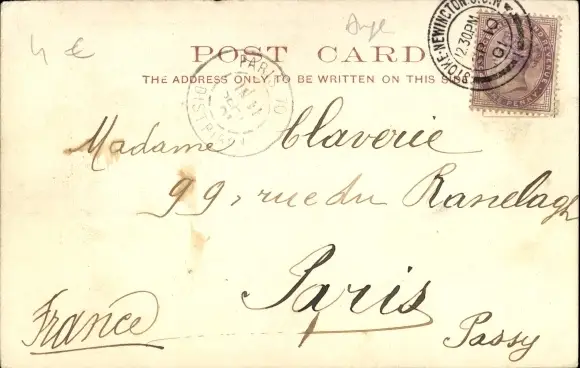 4 €
Angl
POST CARD
THE ADDRESS ONLY TO BE WRITTEN ON THIS SIDE
STOKE-NEWINGTON.S.O.N
12.30PM
SP 10
01
PARIS
DISTRIBUTION
Madame Claverie
99, rue du Ranelagh
Paris
Passy
France